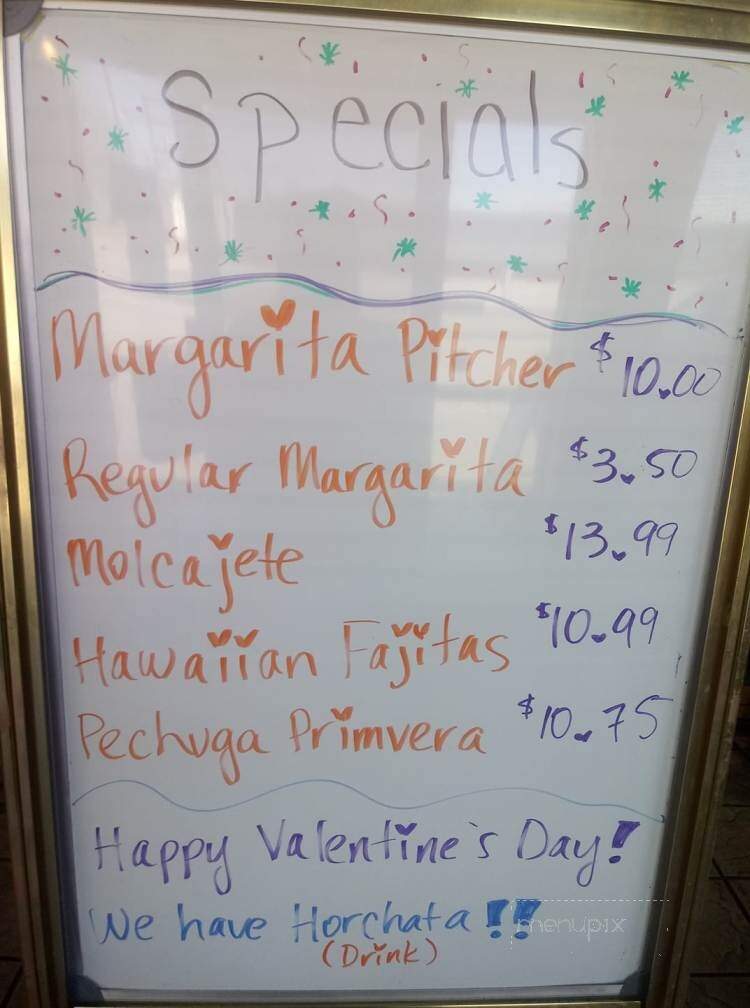 Specials
Margarita Pitcher $10.00
Regular Margarita $3.50
Molcajete $13.99
Hawaiian Fajitas $10.99
Pechuga Primvera $10.75
Happy Valentine's Day!
We have Horchata!!
(Drink)
menupix